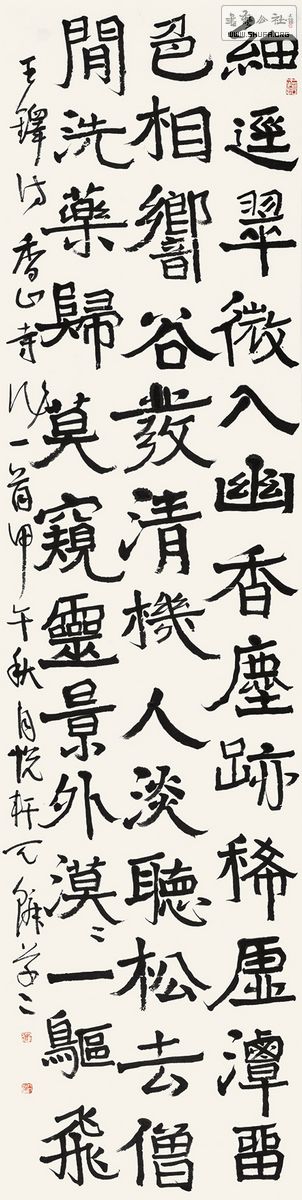 書法公社
WWW.SHUFA.ORG
細逕翠微入幽香塵跡稀虛潭留
色相響谷發清機人淡聽松去僧
閒洗藥歸莫窺靈景外漠〻一鷗飛
王鐸詩香山寺作一首甲午秋月悅軒